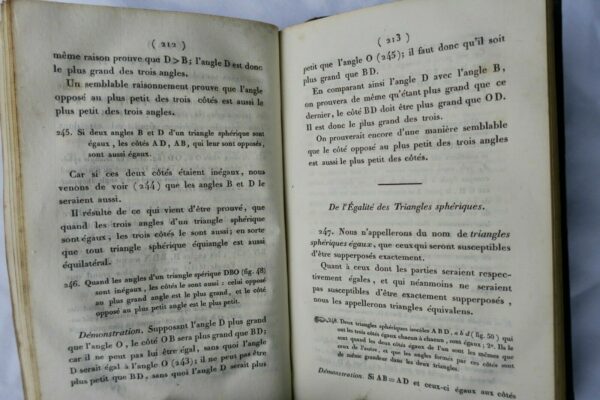 ( 212 )
même raison prouve que D > B; l'angle D est donc
le plus grand des trois angles.
Un semblable raisonnement prouve que l'angle
opposé au plus petit des trois côtés est aussi le
plus petit des trois angles.
245. Si deux angles B et D d'un triangle sphérique sont
égaux, les côtés AD, AB, qui leur sont opposés,
sont aussi égaux.
Car si ces deux côtés étaient inégaux, nous
venons de voir (244) que les angles B et D le
seraient aussi.
Il résulte de ce qui vient d'être prouvé, que
quand les trois angles d'un triangle sphérique
sont égaux, les trois côtés le sont aussi; en sorte
que tout triangle sphérique équiangle est aussi
équilatéral.
246. Quand les angles d'un triangle spérique DBO (fig. 48)
sont inégaux, les côtés le sont aussi : celui opposé
au plus grand angle est le plus grand, et le côté
opposé au plus petit angle est le plus petit.
Démonstration. Supposant l'angle D plus grand
que l'angle O, le côté OB sera plus grand que BD;
car il ne peut pas lui être égal, sans quoi l'angle
D serait égal à l'angle O (243); il ne peut pas être
plus petit que BD, sans quoi l'angle D serait plus
( 213 )
petit que l'angle O (245); il faut donc qu'il soit
plus grand que BD.
En comparant ainsi l'angle D avec l'angle B,
on prouvera de même qu'étant plus grand que ce
dernier, le côté BD doit être plus grand que OD.
Il est donc le plus grand des trois.
On prouverait encore d'une manière semblable
que le côté opposé au plus petit des trois angles
est aussi le plus petit des côtés.
De l'Égalité des Triangles sphériques.
247. Nous n'appellerons du nom de triangles
sphériques égaux, que ceux qui seront susceptibles
d'être supposés exactement.
Quant à ceux dont les parties seraient respec-
tivement égales, et qui néanmoins ne seraient
pas susceptibles d'être exactement superposés,
nous les appellerons triangles équivalens.
248. Deux triangles sphériques isocèles ABD, abd (fig. 50) qui
ont les trois côtés égaux chacun à chacun, sont égaux; 2°. Ils le
sont quand les deux côtés égaux de l'un sont les mêmes que
ceux de l'autre, et que les angles formés par ces côtés sont de
même grandeur dans les deux triangles.
Démonstration. Si AB = AD et ceux-ci égaux aux côtés